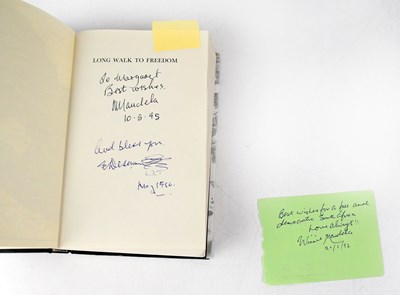 LONG WALK TO FREEDOM
To Margaret
Best wishes
NMandela
10·8·95
God bless you
May 1996.
Best wishes for a free and
democratic South Africa
Love always!!
Winnie Mandela